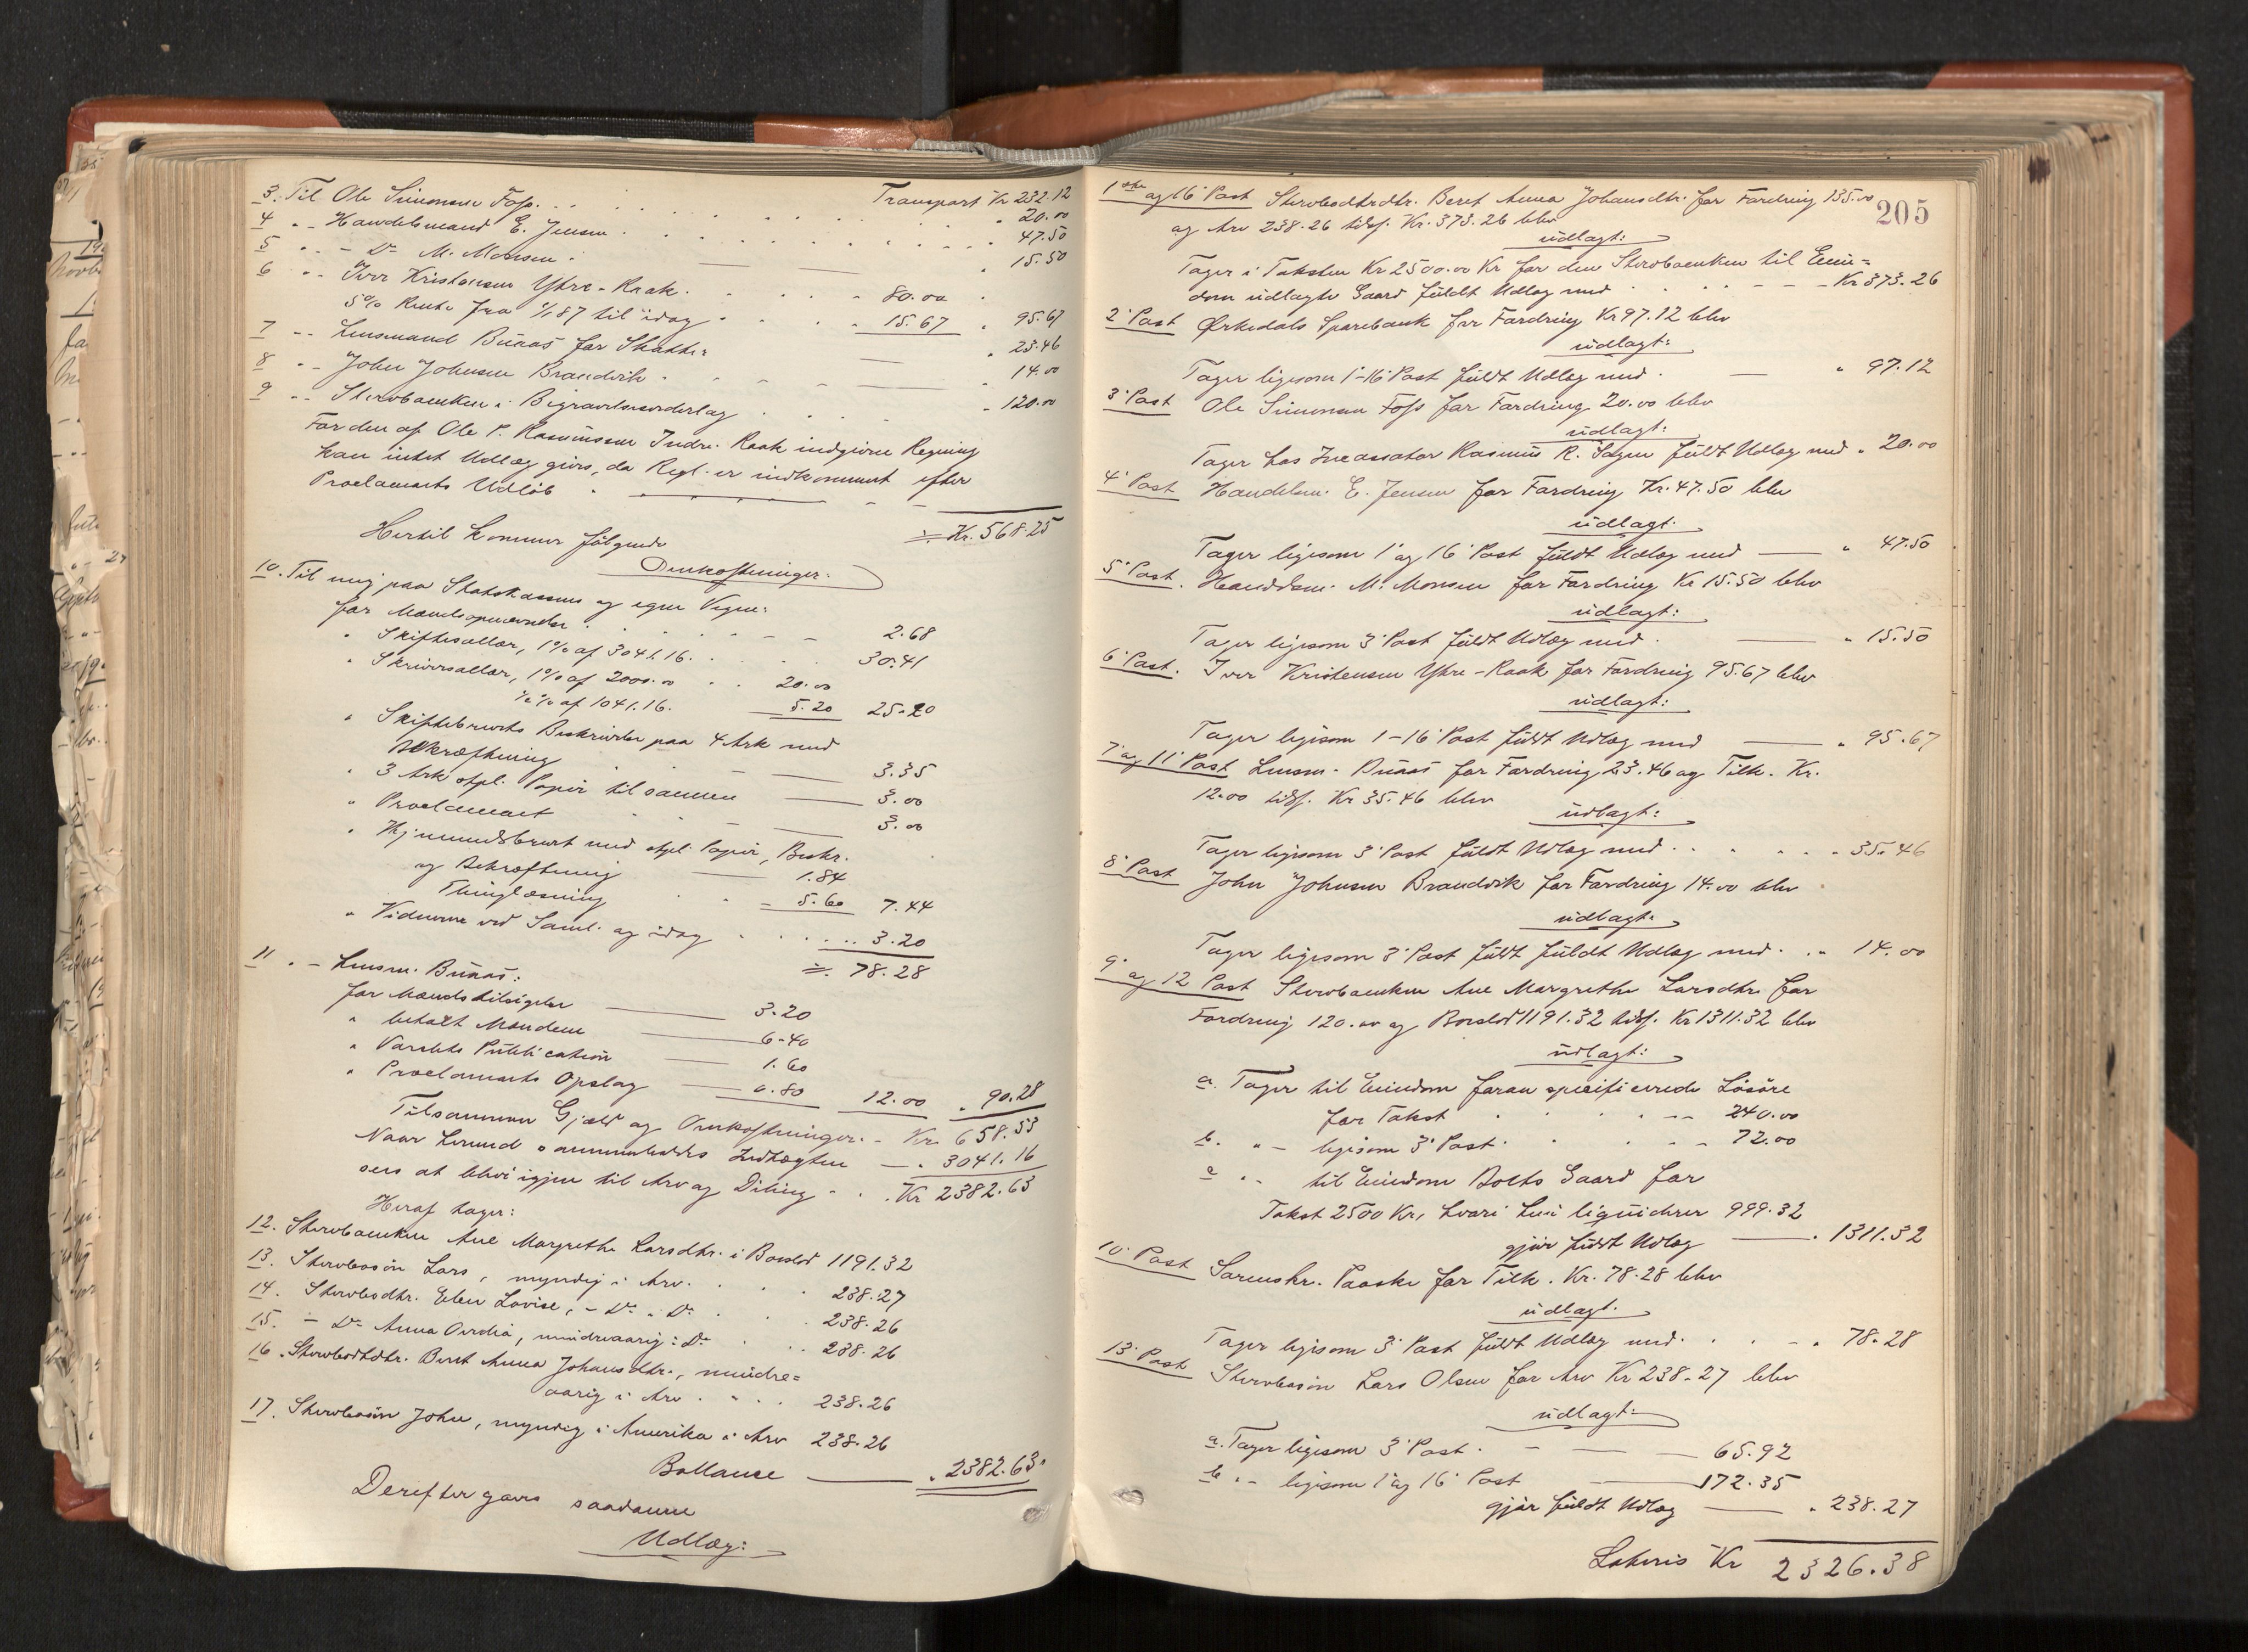 Transport Kr 232.12
3. Til Ole Simonsen Foss . . . " 20.00
4 " - Handelsmand E. Jensen . . . 47.50
5 " - Do M. Monsen . " 15.50
6 " - Iver Kristensen Ydre-Raak . . . 80.00
5% Rente fra 1/1 87 til idag . . . 15.67 " 95.67
7 " - Lensmand Buaas for Skatter " 23.46
8 " - John Johnsen Brandvik . " 14.00
9 " - Stervboenken i Begravelsesvederlag . . . " 120.00
For den af Ole P. Rasmussen Indre-Raak indgivne Regning
kan intet Udlæg gives, da Regl. er indkommet efter
Proclamets Udløb .
÷ Kr. 568.25
Hertil kommer følgende
Omkostninger:
10. Til mig paa Statskassens og egne Vegne:
for Mændsopnævnelse . . . 2.68
" Skiftesallar, 1% af 3041.16 . . . 30.41
" Skriversallar, 1% af 2000.00 . . 20.00
½% af 1041.16. 5.20 25.20
" Skiftebrevets Beskrivelse paa 4 Ark med
Bekræftning 3.35
" 3 Ark stpl. Papir tilsammen 3.00
" Proclamaet 3.00
" Hjemmelsbrevet med stpl. Papir, Beskr.
og Bekræftning 1.84
Thinglæsning 5.60 7.44
" Vidnerne ved Saml. og idag . . . 3.20
÷ 78.28
11 " - Lensm. Buaas:
for Mændstilsigelse 3.20
" betalt Mændene 6.40
" Varslets Publication 1.60
" Proclamaets Opslag 0.80 12.00 " 90.28
Tilsammen Gjæld og Omkostninger - Kr. 658.53
Naar herimod sammenholdes Indtægten - " 3041.16
sees at blive igjen til Arv og Deling - . . Kr 2382.63
Heraf tager:
12. Stervboenken Ane Margrethe Larsdtr. i Boeslod 1191.32
13. Sterbosøn Lars, myndig i Arv . . . 238.27
14. Sterbodtr. Elen Lovise, - Do - Do . . 238.26
15. - Do Anna Ovedia, mindreaarig i Do . . 238.26
16. Sterbodtdtr. Beret Anna Johansdtr., mindre=
aarig i Arv . . . 238.26
17. Sterbosøn John, myndig i Amerika i Arv 238.26
Ballance " 2382.63
Derefter gøres saadanne
Udlæg:
205
1ste og 16' Post Sterbodtrdtr. Beret Anna Johansdtr. for Fordring 135.00
og Arv 238.26 tils. Kr. 373.26 blev
udlagt:
Tager i Taksten Kr 2500.00 Kr for den Sterboenken til Eien=
dom udlagte Gaard fuldt Udlæg med . . . Kr 373.26
2' Post Ørkedals Sparebank for Fordring Kr 97.12 blev
udlagt:
Tager ligesom 1'-16' Post fuldt Udlæg med . " 97.12
3' Post Ole Simonsen Foss for Fordring 20.00 blev
udlagt:
Tager hos Incassator Rasmus R. Sagen fuldt Udlæg med " 20.00
4' Post Handelsm. E. Jensen for Fordring Kr. 47.50 blev
udlagt:
Tager ligesom 1' og 16' Post fuldt Udlæg med " 47.50
5' Post. Handelsm. M. Monsen for Fordring Kr 15.50 blev
udlagt:
Tager ligesom 3' Post fuldt Udlæg med . " 15.50
6' Post. Iver Kristensen Ydre-Raak for Fordring 95.67 blev
udlagt:
Tager ligesom 1-16' Post fuldt Udlæg med " 95.67
7' og 11' Post Lensm. Buaas for Fordring 23.46 og Tilk. Kr.
12.00 tils. Kr 35.46 blev
udlagt:
Tager ligesom 3' Post fuldt Udlæg med . . . " 35.46
8' Post John Johnsen Brandvik for Fordring 14.00 blev
udlagt:
Tager ligesom 3' Post fuldt fuldt Udlæg med . . " 14.00
9' og 12 Post Sterboenken Ane Margrethe Larsdtr. for
Fordring 120.00 og Boeslod 1191.32 tils. Kr 1311.32 blev
udlagt:
a. Tager til Eiendom foran specificerede Løsøre
for Takst . . . 240.00
b. " - ligesom 3' Post . . . 72.00
c " - til Eiendom Boets Gaard for
Takst 2500 Kr, hvori hun liquiderer 999.32
gjør fuldt Udlæg " 1311.32
10' Post Sorenskr. Paaske for Tilk. Kr. 78.28 blev
udlagt.
Tager ligesom 3' Post fuldt Udlæg med . . . " 78.28
13' Post Sterbosøn Lars Olsen for Arv Kr 238.27 blev
udlagt:
a. Tager ligesom 3' Post . 65.92
b " - ligesom 1' og 16' Post 172.35
gjør fuldt Udlæg " 238.27
Lateris Kr 2326.38